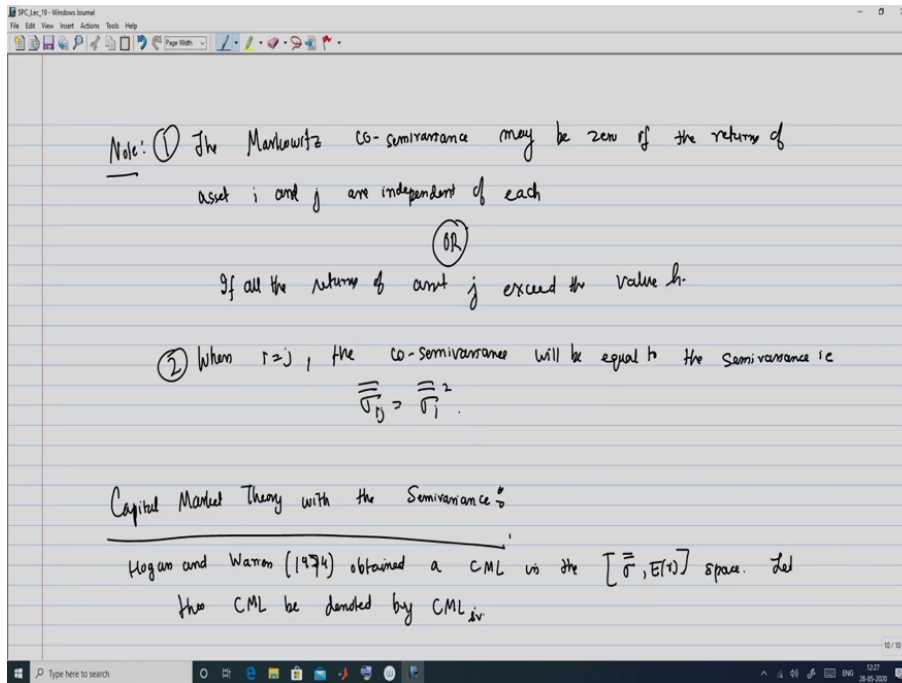 SPC_Lec_19 - Windows Journal
File Edit View Insert Actions Tools Help
Page Width
Note: ① The Markowitz co-semivariance may be zero if the returns of
asset i and j are independent of each
OR
If all the returns of asset j exceed the value h.
② When i=j, the co-semivariance will be equal to the semivariance ie
σ̿ij = σ̿i².
Capital Market Theory with the Semivariance:
Hogan and Warren (1974) obtained a CML in the [σ̿, E(r)] space. Let
this CML be denoted by CML sv
10 / 10
Type here to search
ENG
12:27
28-05-2020